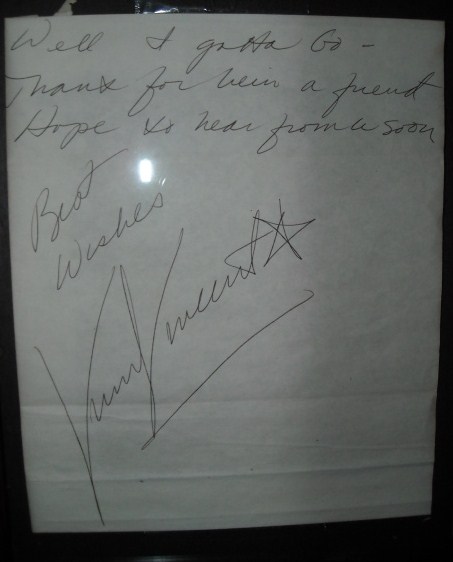 Well I gotta Go -
Thanx for bein a friend
Hope to hear from u soon
Best
Wishes
Vincent